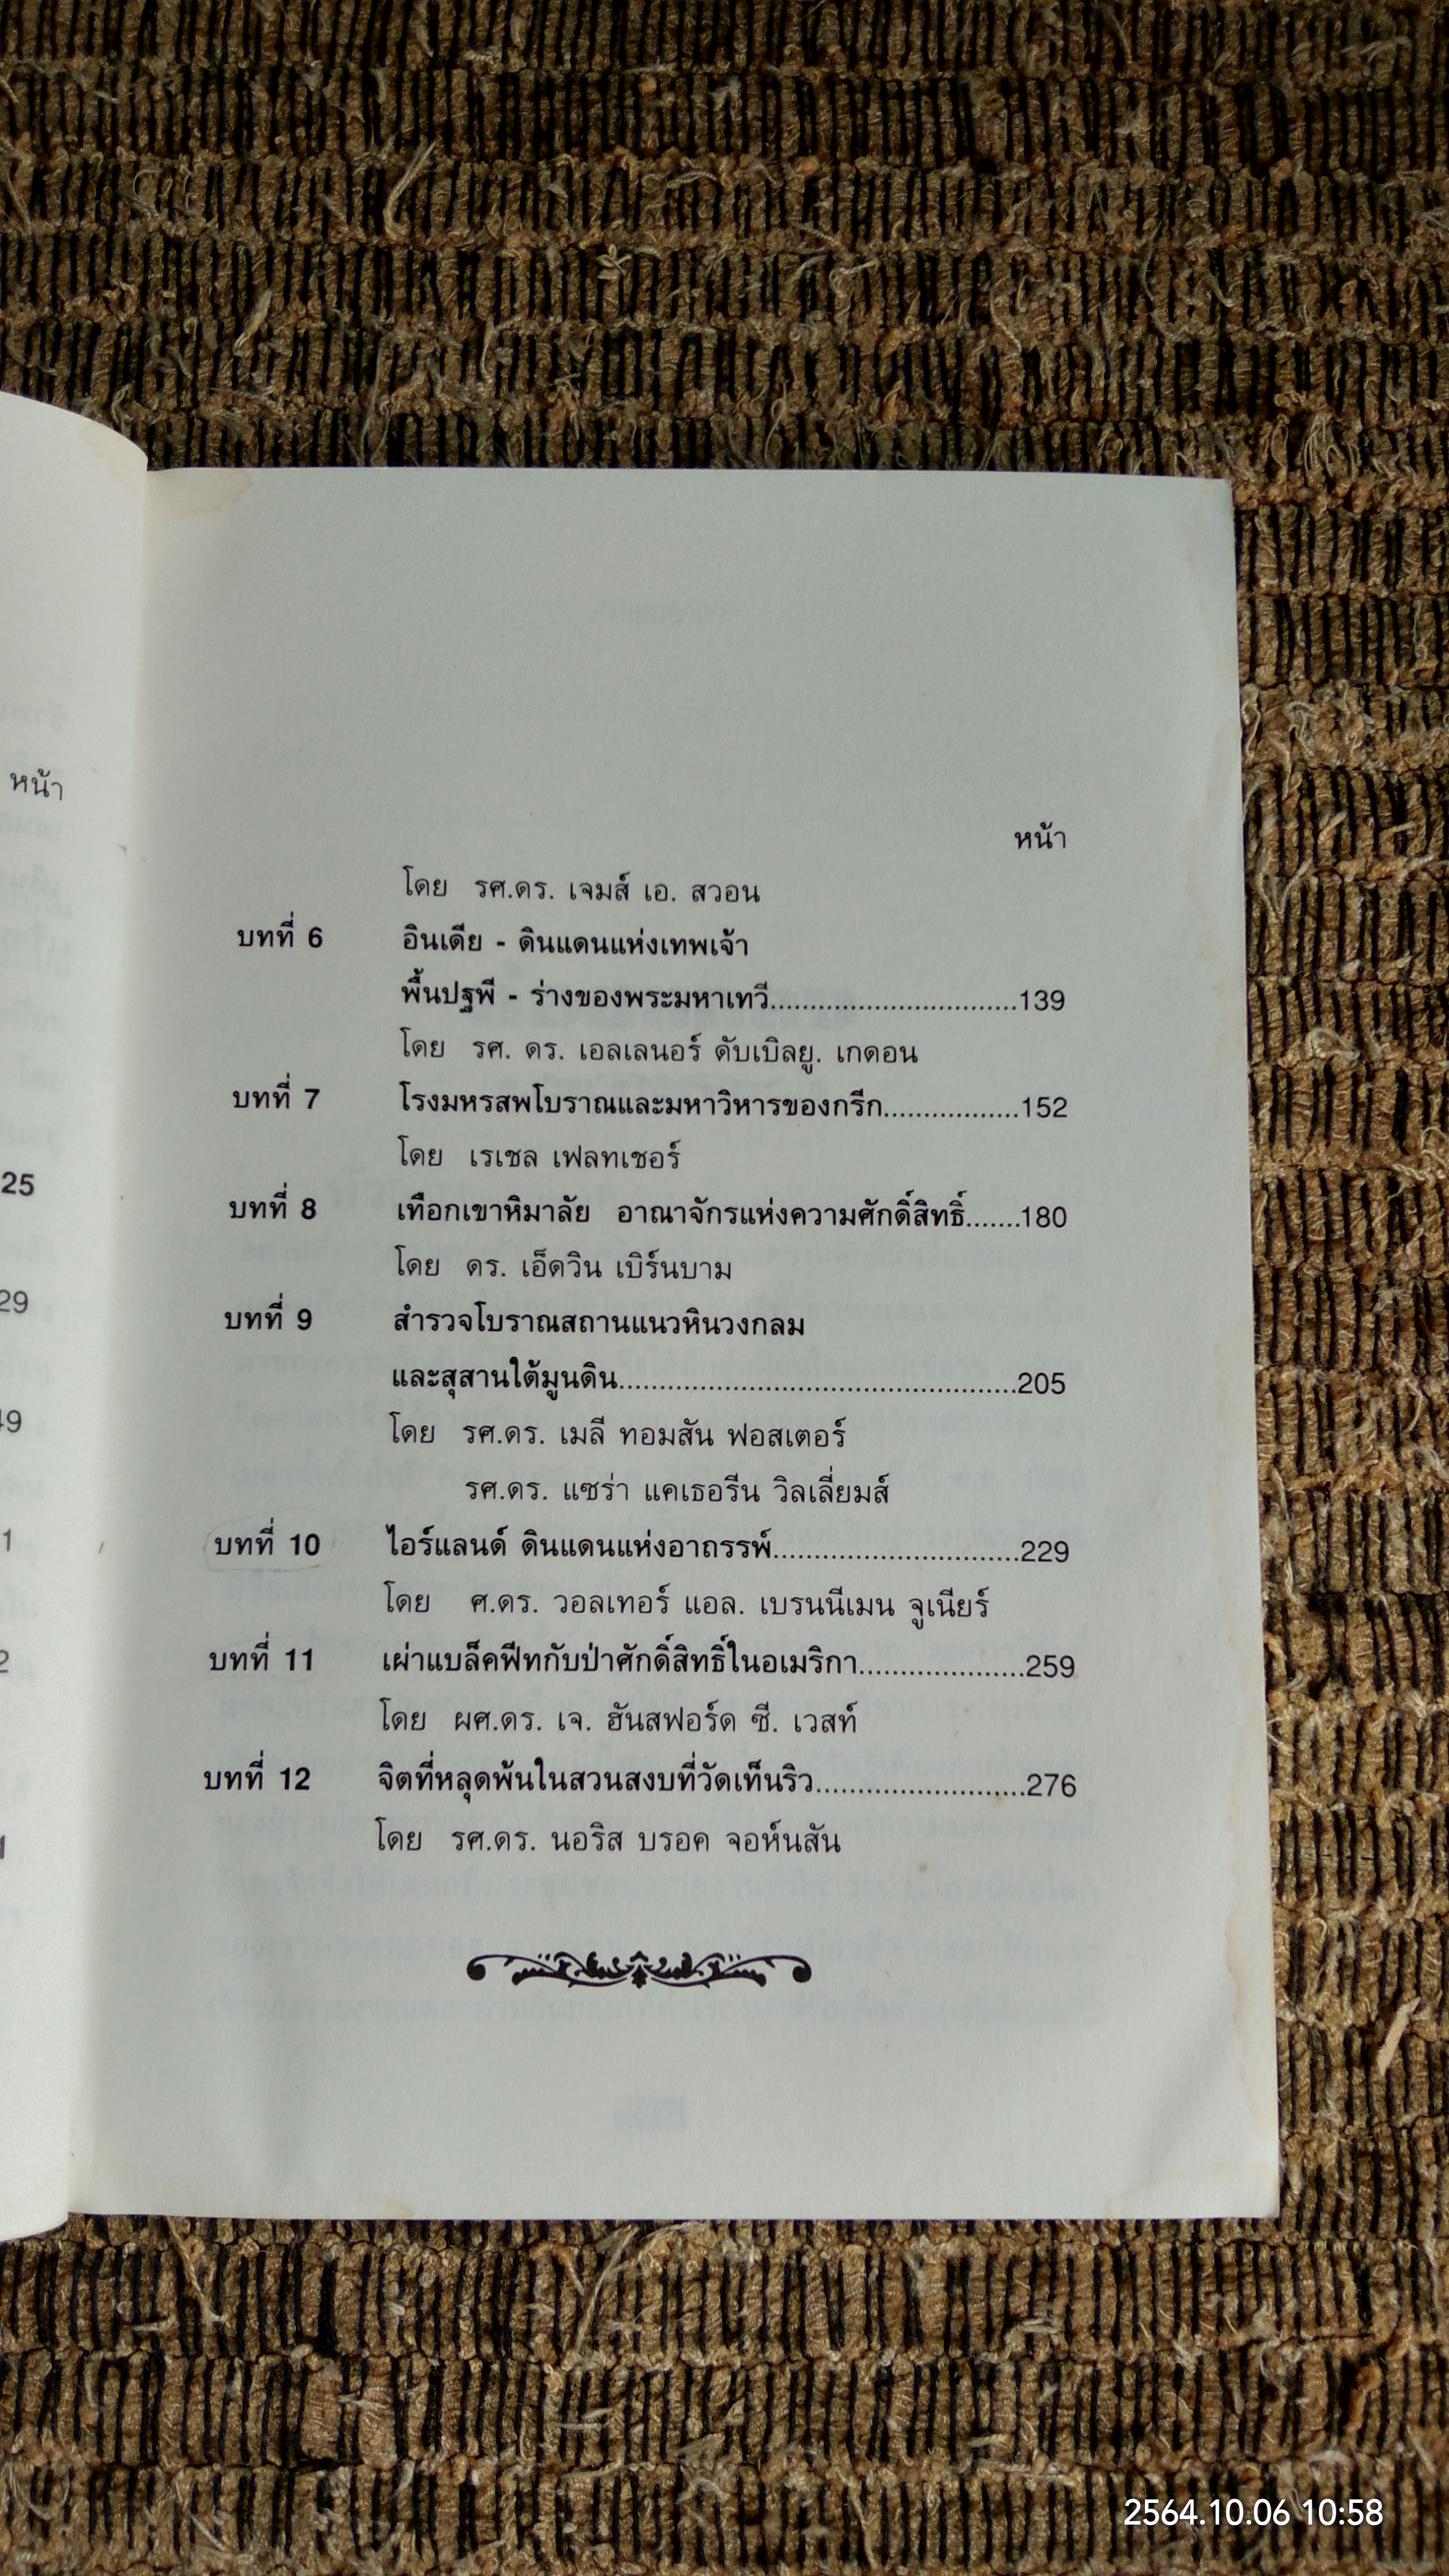 หน้า
25
29
49
1
2
หน้า
โดย รศ.ดร. เจมส์ เอ. สวอน
บทที่ 6 อินเดีย - ดินแดนแห่งเทพเจ้า
พื้นปฐพี - ร่างของพระมหาเทวี...............................139
โดย รศ. ดร. เอลเลนอร์ ดับเบิลยู. เกดอน
บทที่ 7 โรงมหรสพโบราณและมหาวิหารของกรีก.................152
โดย เรเชล เฟลทเชอร์
บทที่ 8 เทือกเขาหิมาลัย อาณาจักรแห่งความศักดิ์สิทธิ์.......180
โดย ดร. เอ็ดวิน เบิร์นบาม
บทที่ 9 สำรวจโบราณสถานแนวหินวงกลม
และสุสานใต้มูนดิน..................................................205
โดย รศ.ดร. เมลี ทอมสัน ฟอสเตอร์
รศ.ดร. แซร่า แคเธอรีน วิลเลี่ยมส์
บทที่ 10 ไอร์แลนด์ ดินแดนแห่งอาถรรพ์...............................229
โดย ศ.ดร. วอลเทอร์ แอล. เบรนนีเมน จูเนียร์
บทที่ 11 เผ่าแบล็คฟีทกับป่าศักดิ์สิทธิ์ในอเมริกา.....................259
โดย ผศ.ดร. เจ. ฮันสฟอร์ด ซี. เวสท์
บทที่ 12 จิตที่หลุดพ้นในสวนสงบที่วัดเท็นริว..........................276
โดย รศ.ดร. นอริส บรอค จอห์นสัน
2564.10.06 10:58